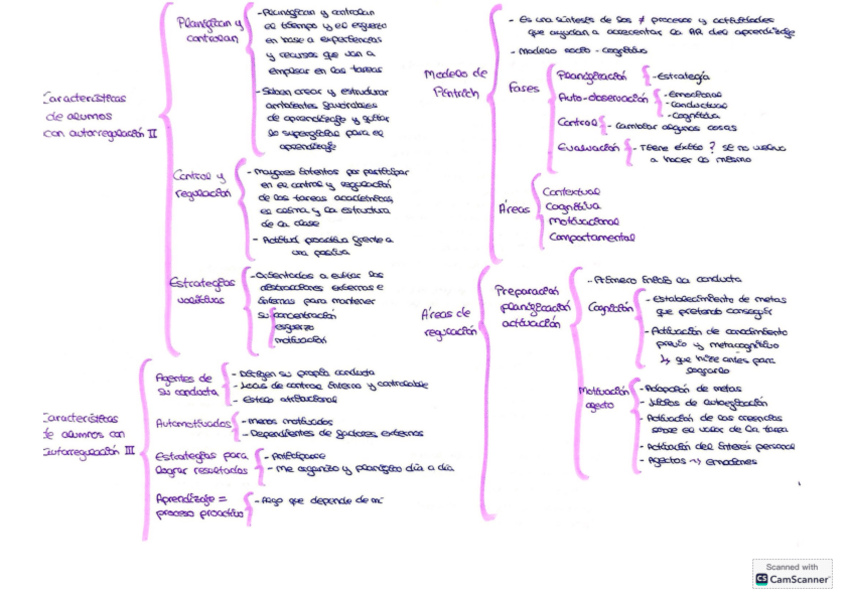 Características
de alumnos
con autorregulación II
Planifican y
controlan
- Planifican y controlan
el tiempo y el esfuerzo
en base a experiencias
y recursos que van a
emplear en las tareas
- Saben crear y estructurar
ambientes favorables
de aprendizaje y quitar
lo superfluo para el
aprendizaje
Control y
regulación
- Mayores intentos por participar
en el control y regulación
de las tareas académicas,
el clima y la estructura
de la clase
- Actitud proactiva frente a
una pasiva
Estrategias
volitivas
- Orientadas a evitar las
distracciones externas e
internas para mantener
su concentración
esfuerzo
motivación
Características
de alumnos con
autorregulación III
Agentes de
su conducta
- Dirigen su propia conducta
- Locus de control interno y controlable
- Estilo atribucional
Automotivados
- menos motivados
- Dependientes de factores externos
Estrategias para
lograr resultados
- Anticiparse
- me organizo y planifico día a día
Aprendizaje =
proceso proactivo
- Algo que depende de mí
Modelo de
Pintrich
- Es una síntesis de los ≠ procesos y actividades
que ayudan a acrecentar la AR del aprendizaje
- Modelo socio-cognitivo
Fases
Planificación
- Estrategia
Auto-observación
- Emocional
- Conductual
- Cognitiva
Control
- Cambiar algunas cosas
Evaluación
- Tiene éxito? Si no vuelvo
a hacer lo mismo
Áreas
Contextual
Cognitiva
Motivacional
Comportamental
Áreas de
regulación
Preparación
planificación
activación
- Primero inicio la conducta
Cognición
- Establecimiento de metas
que pretendo conseguir
- Activación de conocimiento
previo y metacognitivo
↳ que hice antes para
lograrlo
Motivación
afecto
- Adopción de metas
- Juicios de autoeficacia
- Activación de las creencias
sobre el valor de la tarea
- Activación del interés personal
- Afectos → emociones
Scanned with
CS CamScanner